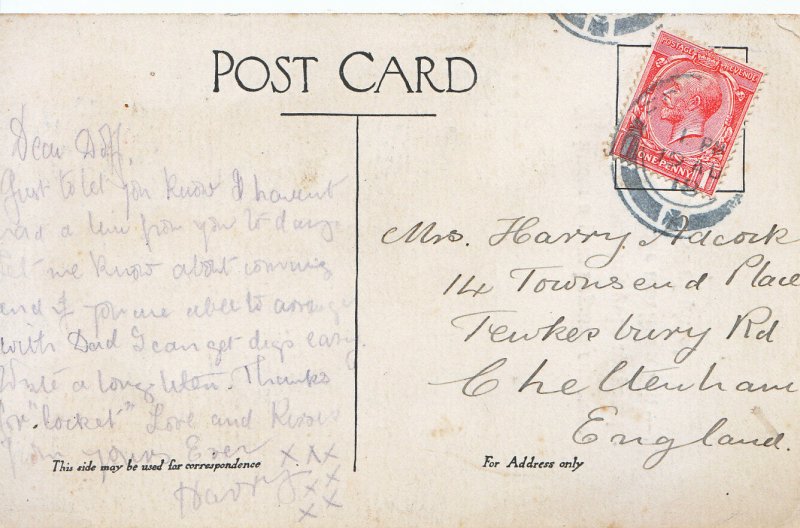 POST CARD
POSTAGE REVENUE
ONE PENNY
1 PM
18
Dear
Just to let you know I havent
had a line from you to day
let me know about coming
and if you are able to arrange
with Dad I can get digs easy.
Write a long letter. Thanks
for "locket" Love and Kisses
I am yours Ever
Harry
x x x
x x
x x
This side may be used for correspondence
Mrs. Harry Adcock
14 Townsend Place
Tewkesbury Rd
Cheltenham
England.
For Address only